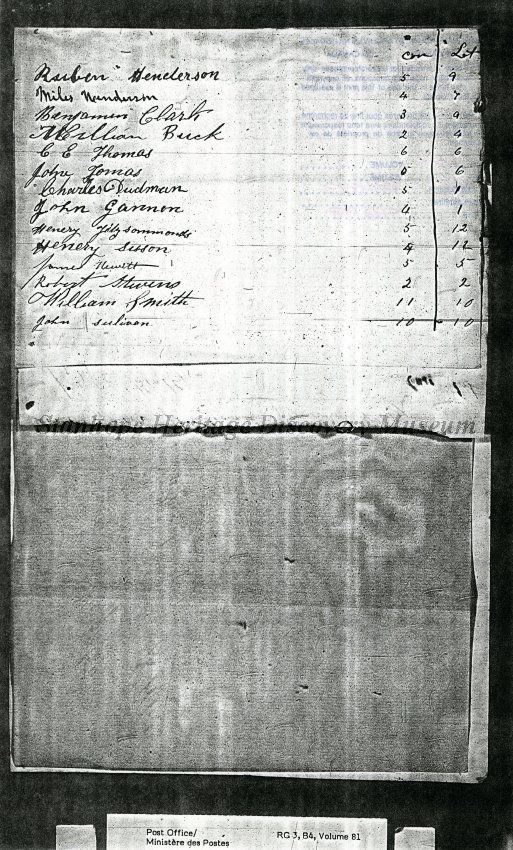 con Lot
Ruben Henderson 5 9
Miles Hunderson 4 7
Benjamin Clark 3 9
William Buck 2 4
C E Thomas 6 6
John Tomas 6
Charles Dudman 5 1
John Gannon 4 1
Henery Fitzsommonds 5 12
Henery Sisson 4 12
James Hewitt 5 5
Robert Stivens 2 2
William Smith 11 10
John Sulivan 10 10
Stanhope Heritage Discovery Museum
Post Office/ RG 3, B4, Volume 81
Ministère des Postes